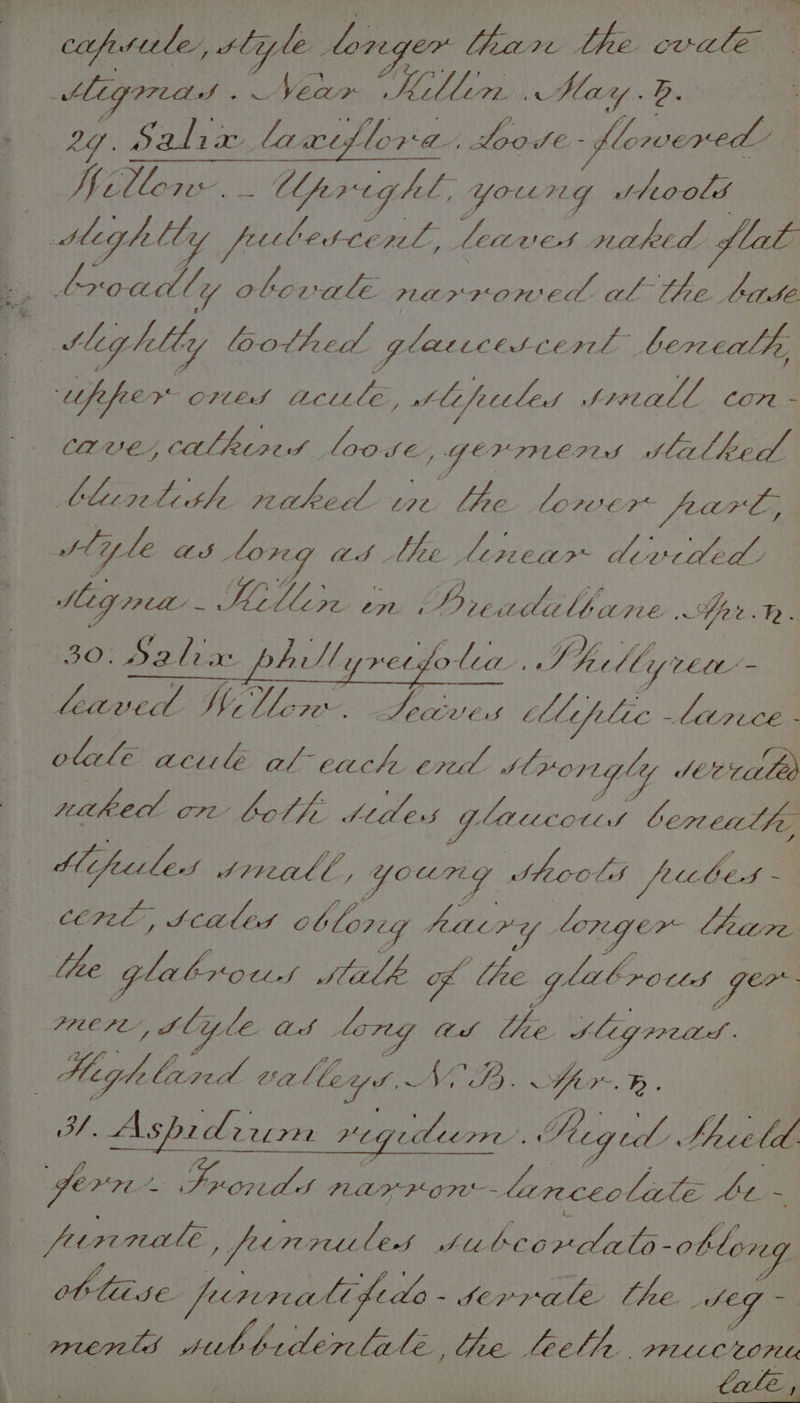 capsule, style longer than the ovate
stigmas. Near Killin. May. ♄.
29. Salix laxiflora. Loose-flowered
Willow. _ Upright, young shoots
slightly pubescent, leaves naked flat
broadly obovate narrowed at the base
slightly toothed glaucescent beneath,
upper ones acute, stipules small con-
cave, catkins loose, germens stalked
bluntish naked in the lower part,
style as long as the linear divided
stigma _ Killin in Breadalbane. Apr. ♄.
30. Salix phillyreifolia. Phillyrea-
leaved Willow. Leaves elliptic-lance-
olate acute at each end strongly serrated
naked on both sides glaucous beneath,
stipules small, young shoots pubes-
cent, scales oblong hairy longer than
the glabrous stalk of the glabrous ger-
men, style as long as the stigmas.
Highland valleys. N. B. Apr. ♄.
31. Aspidium rigidum. Rigid Shield
fern - Fronds narrow-lanceolate bi-
pinnate, pinnules subcordato-oblong
obtuse pinnatifido-serrate the seg-
ments subbidentate, the teeth mucronu
late,